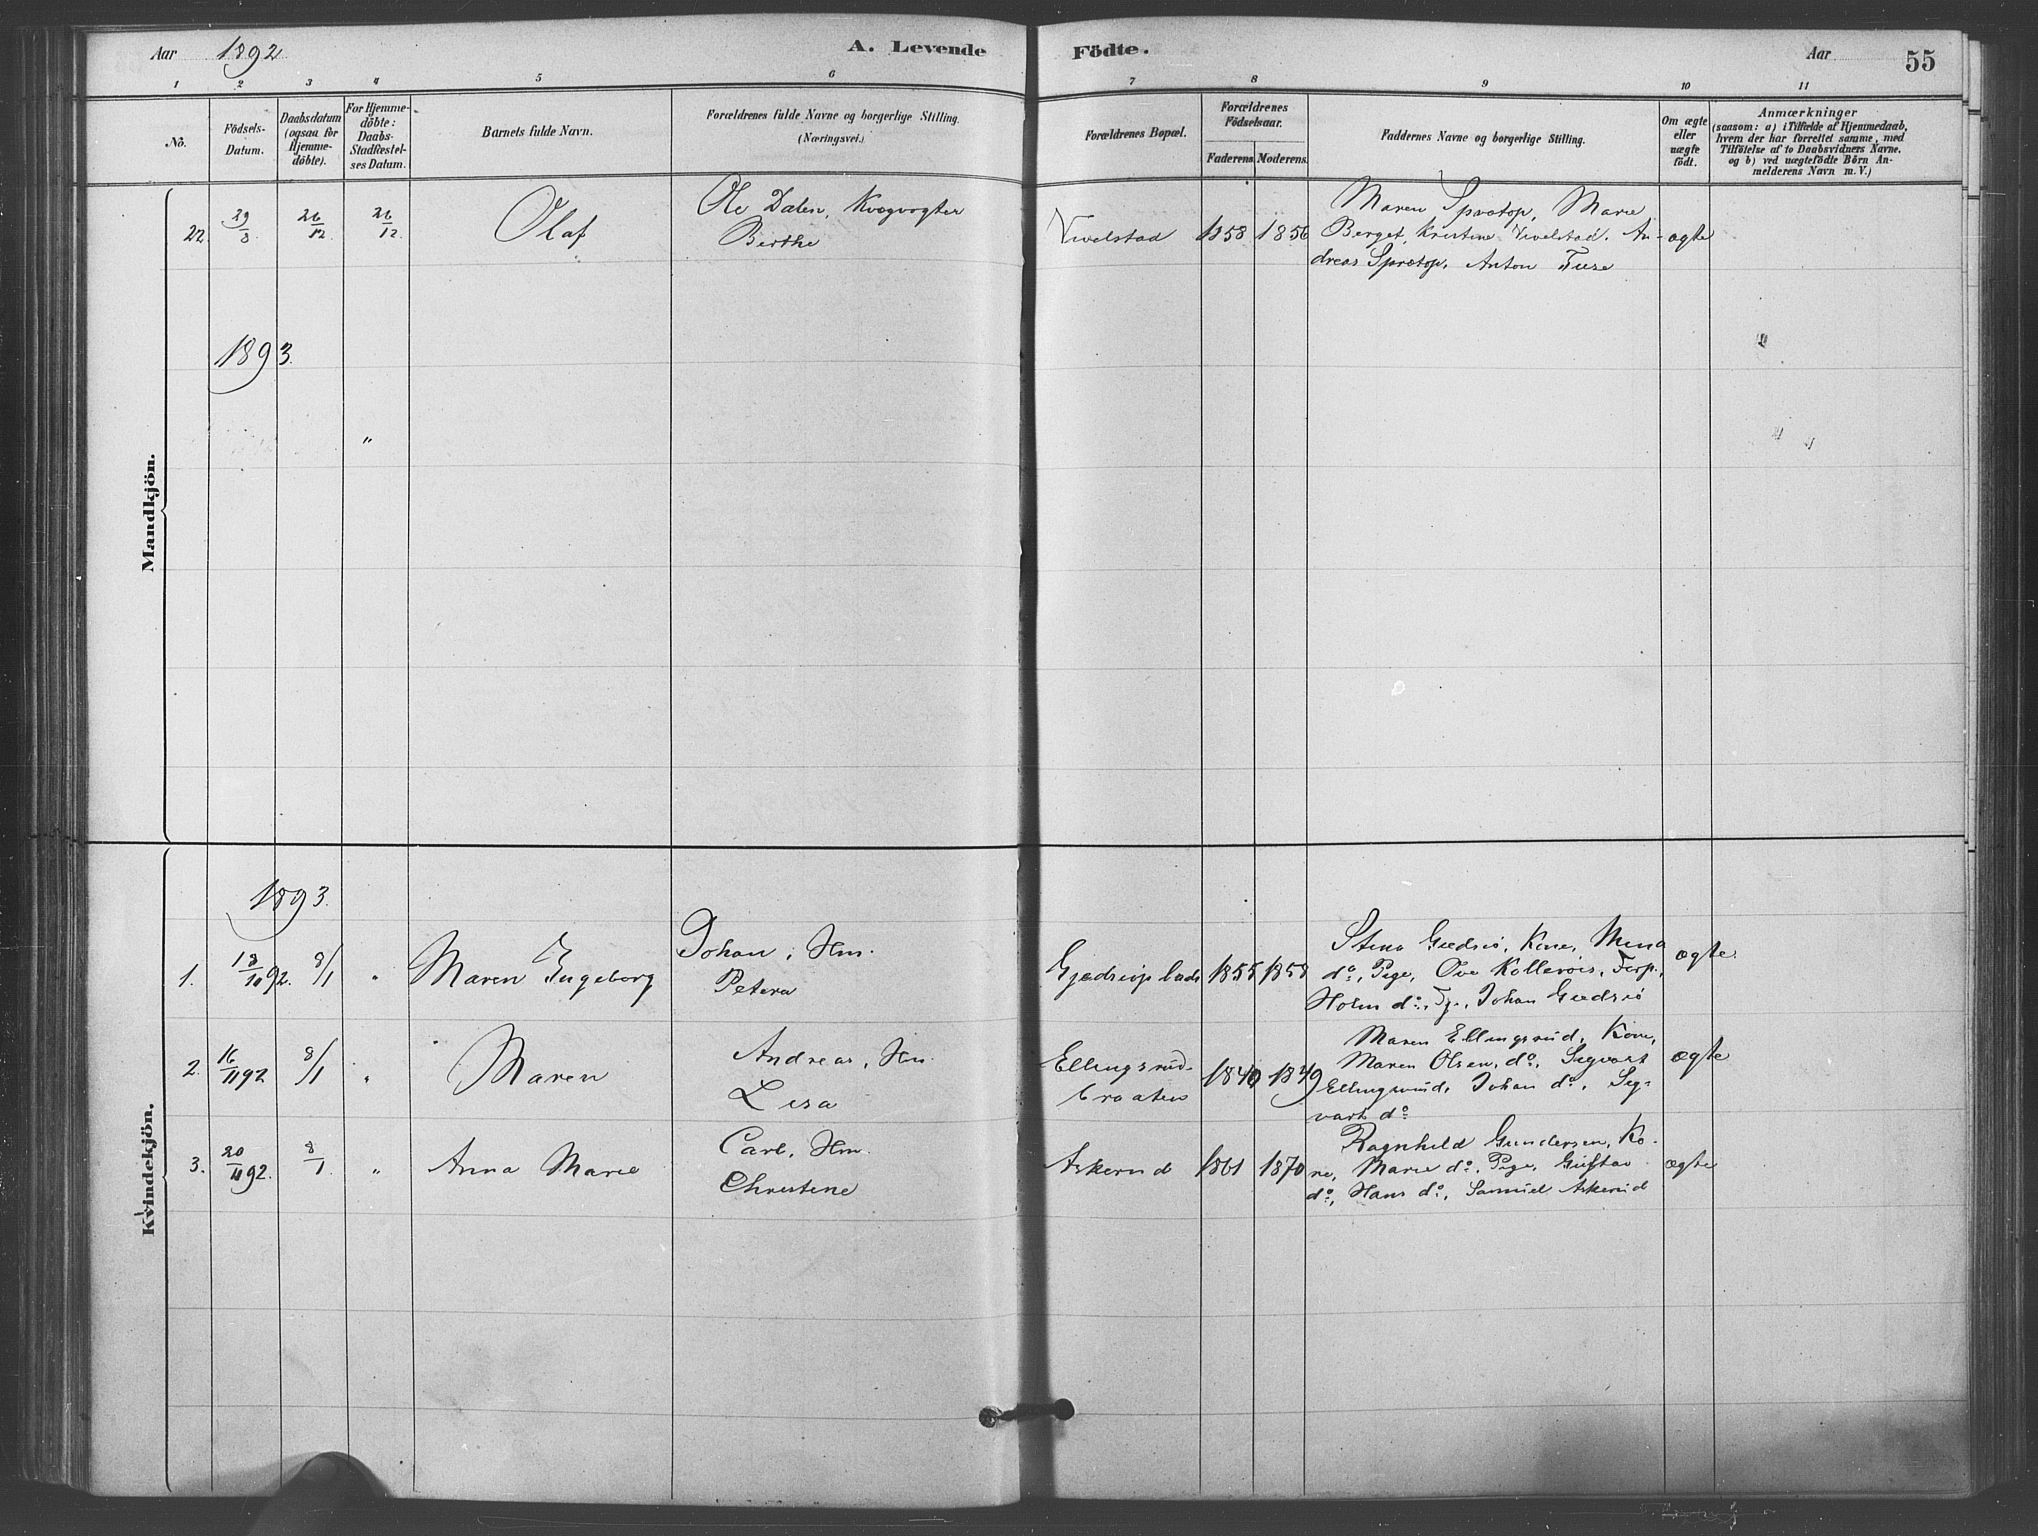 Aar 1892
A. Levende Födte.
Aar
55
1 2 3 4 5 6 7 8 9 10 11
No.
Födsels-
Datum.
Daabsdatum
(ogsaa for
Hjemme-
döbte).
For Hjemme-
döbte:
Daabs-
Stadfæstel-
ses Datum.
Barnets fulde Navn.
Forældrenes fulde Navne og borgerlige Stilling.
(Næringsvei.)
Forældrenes Bopæl.
Forældrenes
Födselsaar.
Faderens. Moderens.
Faddernes Navne og borgerlige Stilling.
Om ægte
eller
uægte
födt.
Anmærkninger
(saasom: a) i Tilfælde af Hjemmedaab,
hvem der har forrettet samme, med
Tilföielse af to Daabsvidners Navne,
og b) ved uægtefödte Börn An-
melderens Navn m. V.)
Mandkjön.
22 29/8 26/12 26/12 Olaf
Ole Dalen, Kvægvogter
Berthe
Vivelstad 1858 1856
Maren Sprotop, Marie
Berget, Kristine Vivelstad, An-
dreas Sprotop, Anton
ægte
1893.
"
Kvindekjön.
1893.
1. 18/10 92. 8/1 " Maren Ingeborg
Johan, Hm.
Petera
1855 1858
Stina Kone, Mina
do, Pige, Ove
Holm do, Johan
ægte
2. 16/11 92 8/1 " Maren
Andreas, Hm.
Lisa
Ellingsrud-
braaten
1840 1849
Maren Ellingsrud, Kone,
Maren Olsen, do, Sigvart
Ellingsrud, Johan do, Sig-
vart do
ægte
3. 20/11 92. 8/1 " Anna Marie
Carl, Hm.
Christine
Askerud 1861 1870
Ragnhild Gundersen, Ko-
ne, Marie do, Pige, Gustav
do, Hans do, Samuel Askerud
ægte